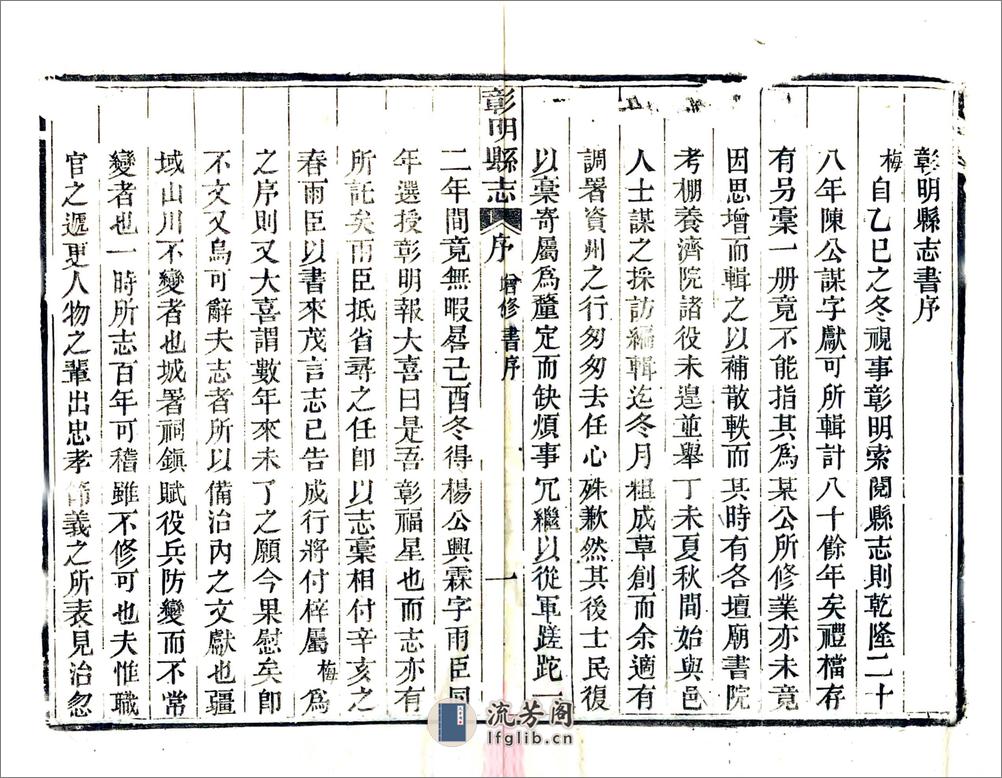 彰明縣志書序
梅自乙巳之冬視事彰明索閱縣志則乾隆二十
八年陳公謀字獻可所輯計八十餘年矣禮檔存
有另稾一册竟不能指其為某公所修業亦未竟
因思增而輯之以補散軼而其時有各壇廟書院
考棚養濟院諸役未遑並舉丁未夏秋間始與邑
人士謀之採訪編輯迄冬月粗成草創而余適有
調署資州之行匆匆去任心殊歉然其後士民復
以稾寄屬為釐定而缺煩事冗繼以從軍蹉跎一
彰明縣志
序
增修書序
一
二年間竟無暇晷己酉冬得楊公興霖字雨臣同
年選授彰明報大喜曰是吾彰福星也而志亦有
所託矣雨臣抵省尋之任卽以志稾相付辛亥之
春雨臣以書來茂言志已告成行將付梓屬梅為
之序則又大喜謂數年來未了之願今果慰矣卽
不文又烏可辭夫志者所以備治內之文獻也疆
域山川不變者也城署祠鎮賦役兵防變而不常
變者也一時所志百年可稽雖不修可也夫惟職
官之遞更人物之輩出忠孝節義之所表見治忽
流芳阁
lfglib.cn